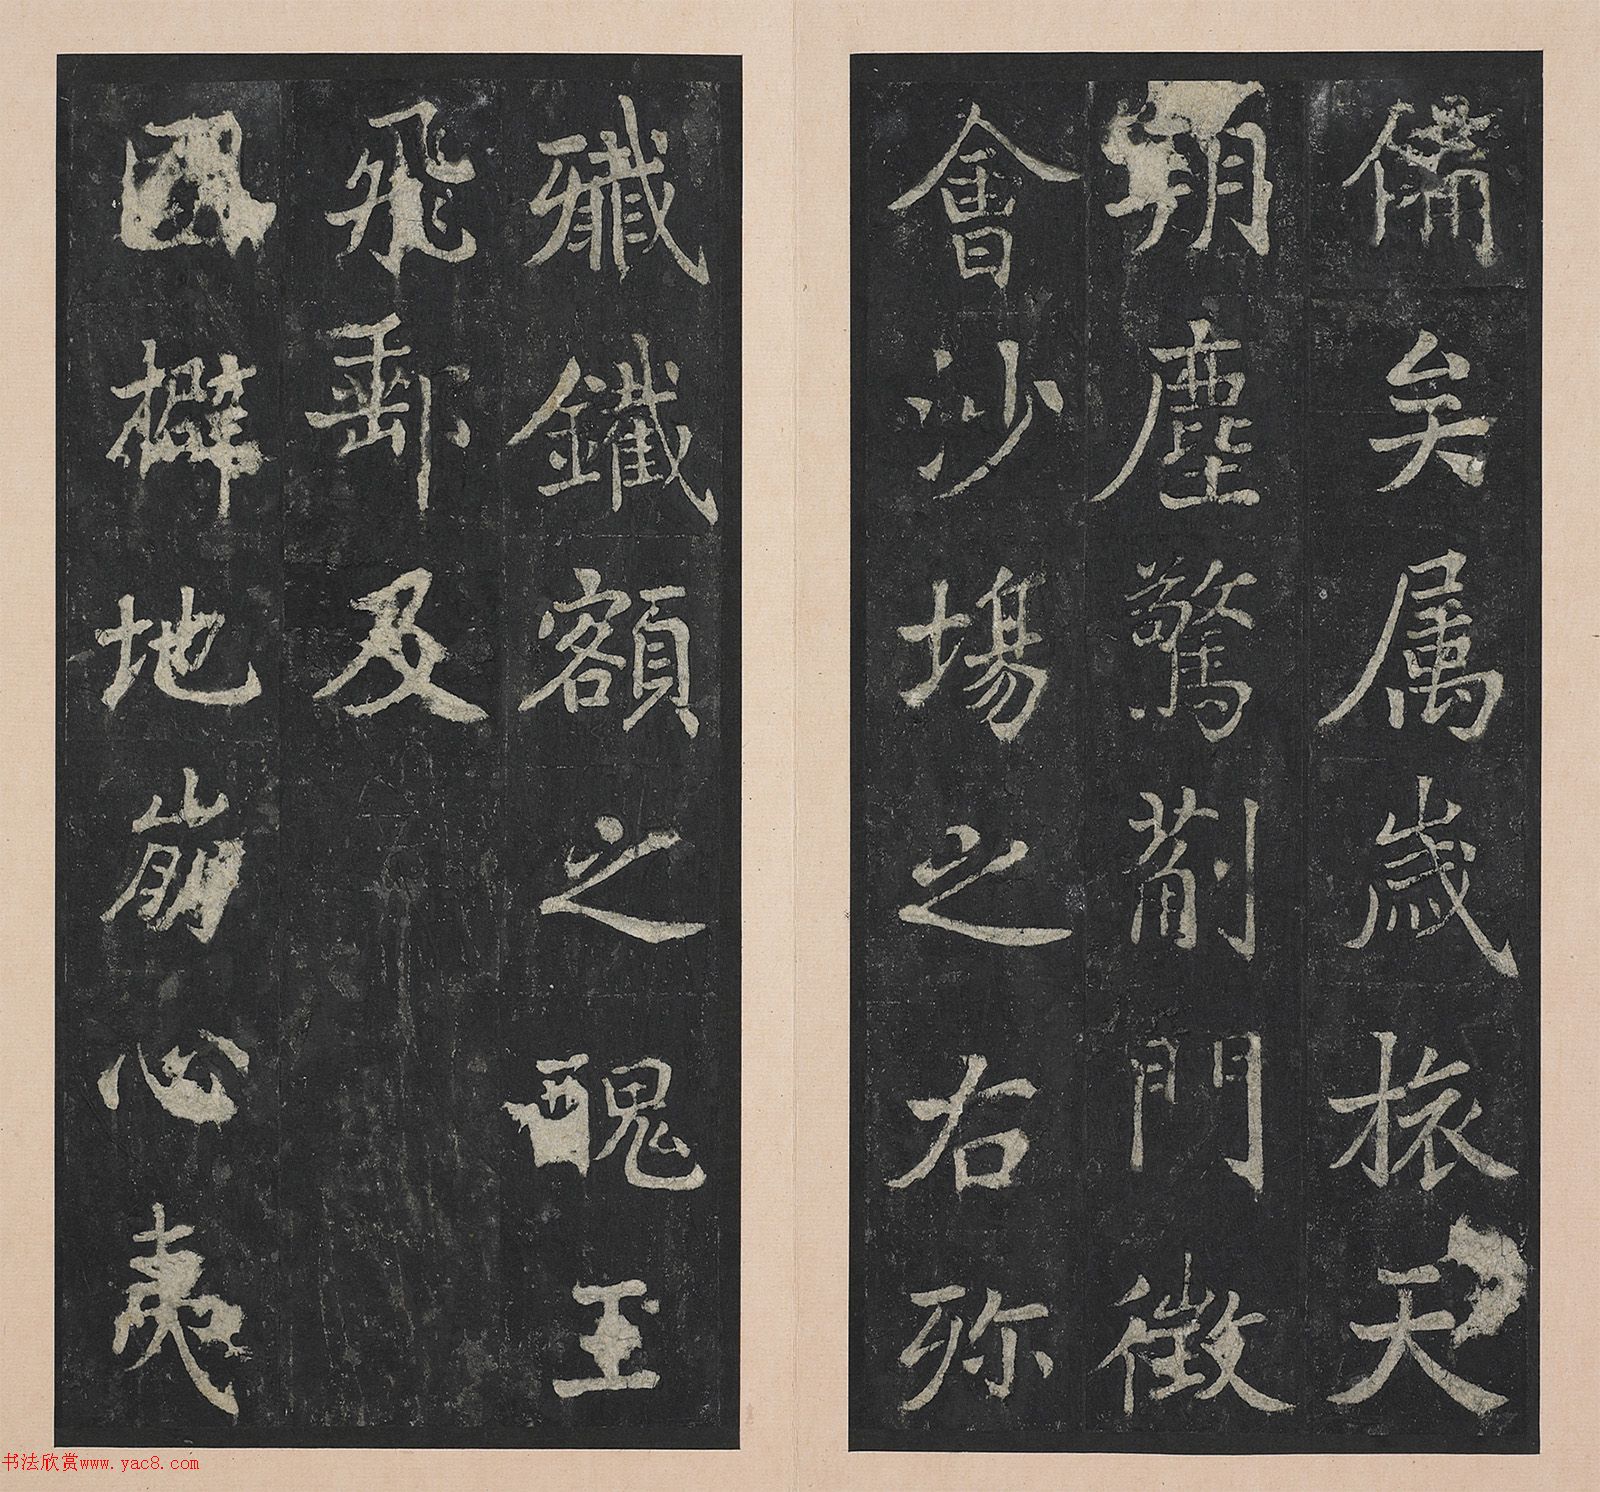 備矣属歲旅天
朔塵驚薊門徵
會沙場之右殄
殲鐵額之醜王
飛郵及
擗地崩心夷
书法欣赏www.yac8.com